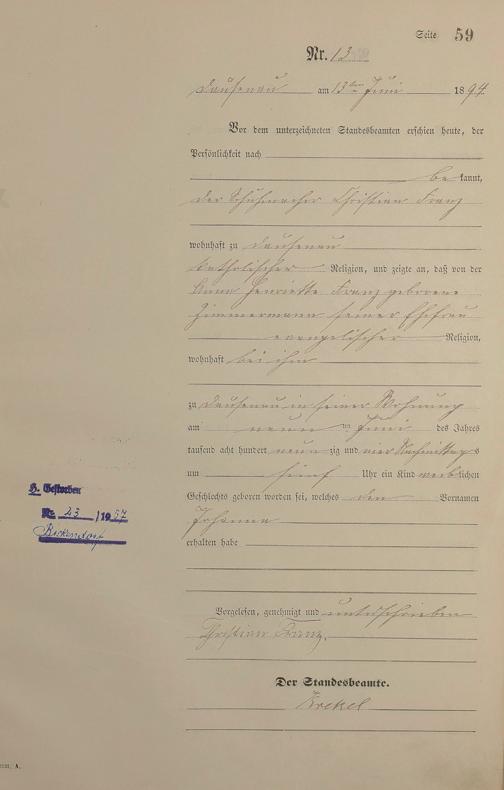 Seite 59
Nr. 13
Dausenau am 13ten Juni 1894.
Vor dem unterzeichneten Standesbeamten erschien heute, der
Persönlichkeit nach
bekannt,
der Schuhmacher Christian Franz
wohnhaft zu Dausenau
katholischer Religion, und zeigte an, daß von der
Anna Henriette Franz geborene
Zimmermann seiner Ehefrau
evangelischer Religion,
wohnhaft bei ihm
zu Dausenau in seiner Wohnung
am neunten Juni des Jahres
tausend acht hundert neunzig und vier Nachmittags
um fünf Uhr ein Kind weiblichen
Geschlechts geboren worden sei, welches den Vornamen
Johanna
erhalten habe
Vorgelesen, genehmigt und unterschrieben
Christian Franz.
Der Standesbeamte.
H. Gestorben
Nr. 23 /1957